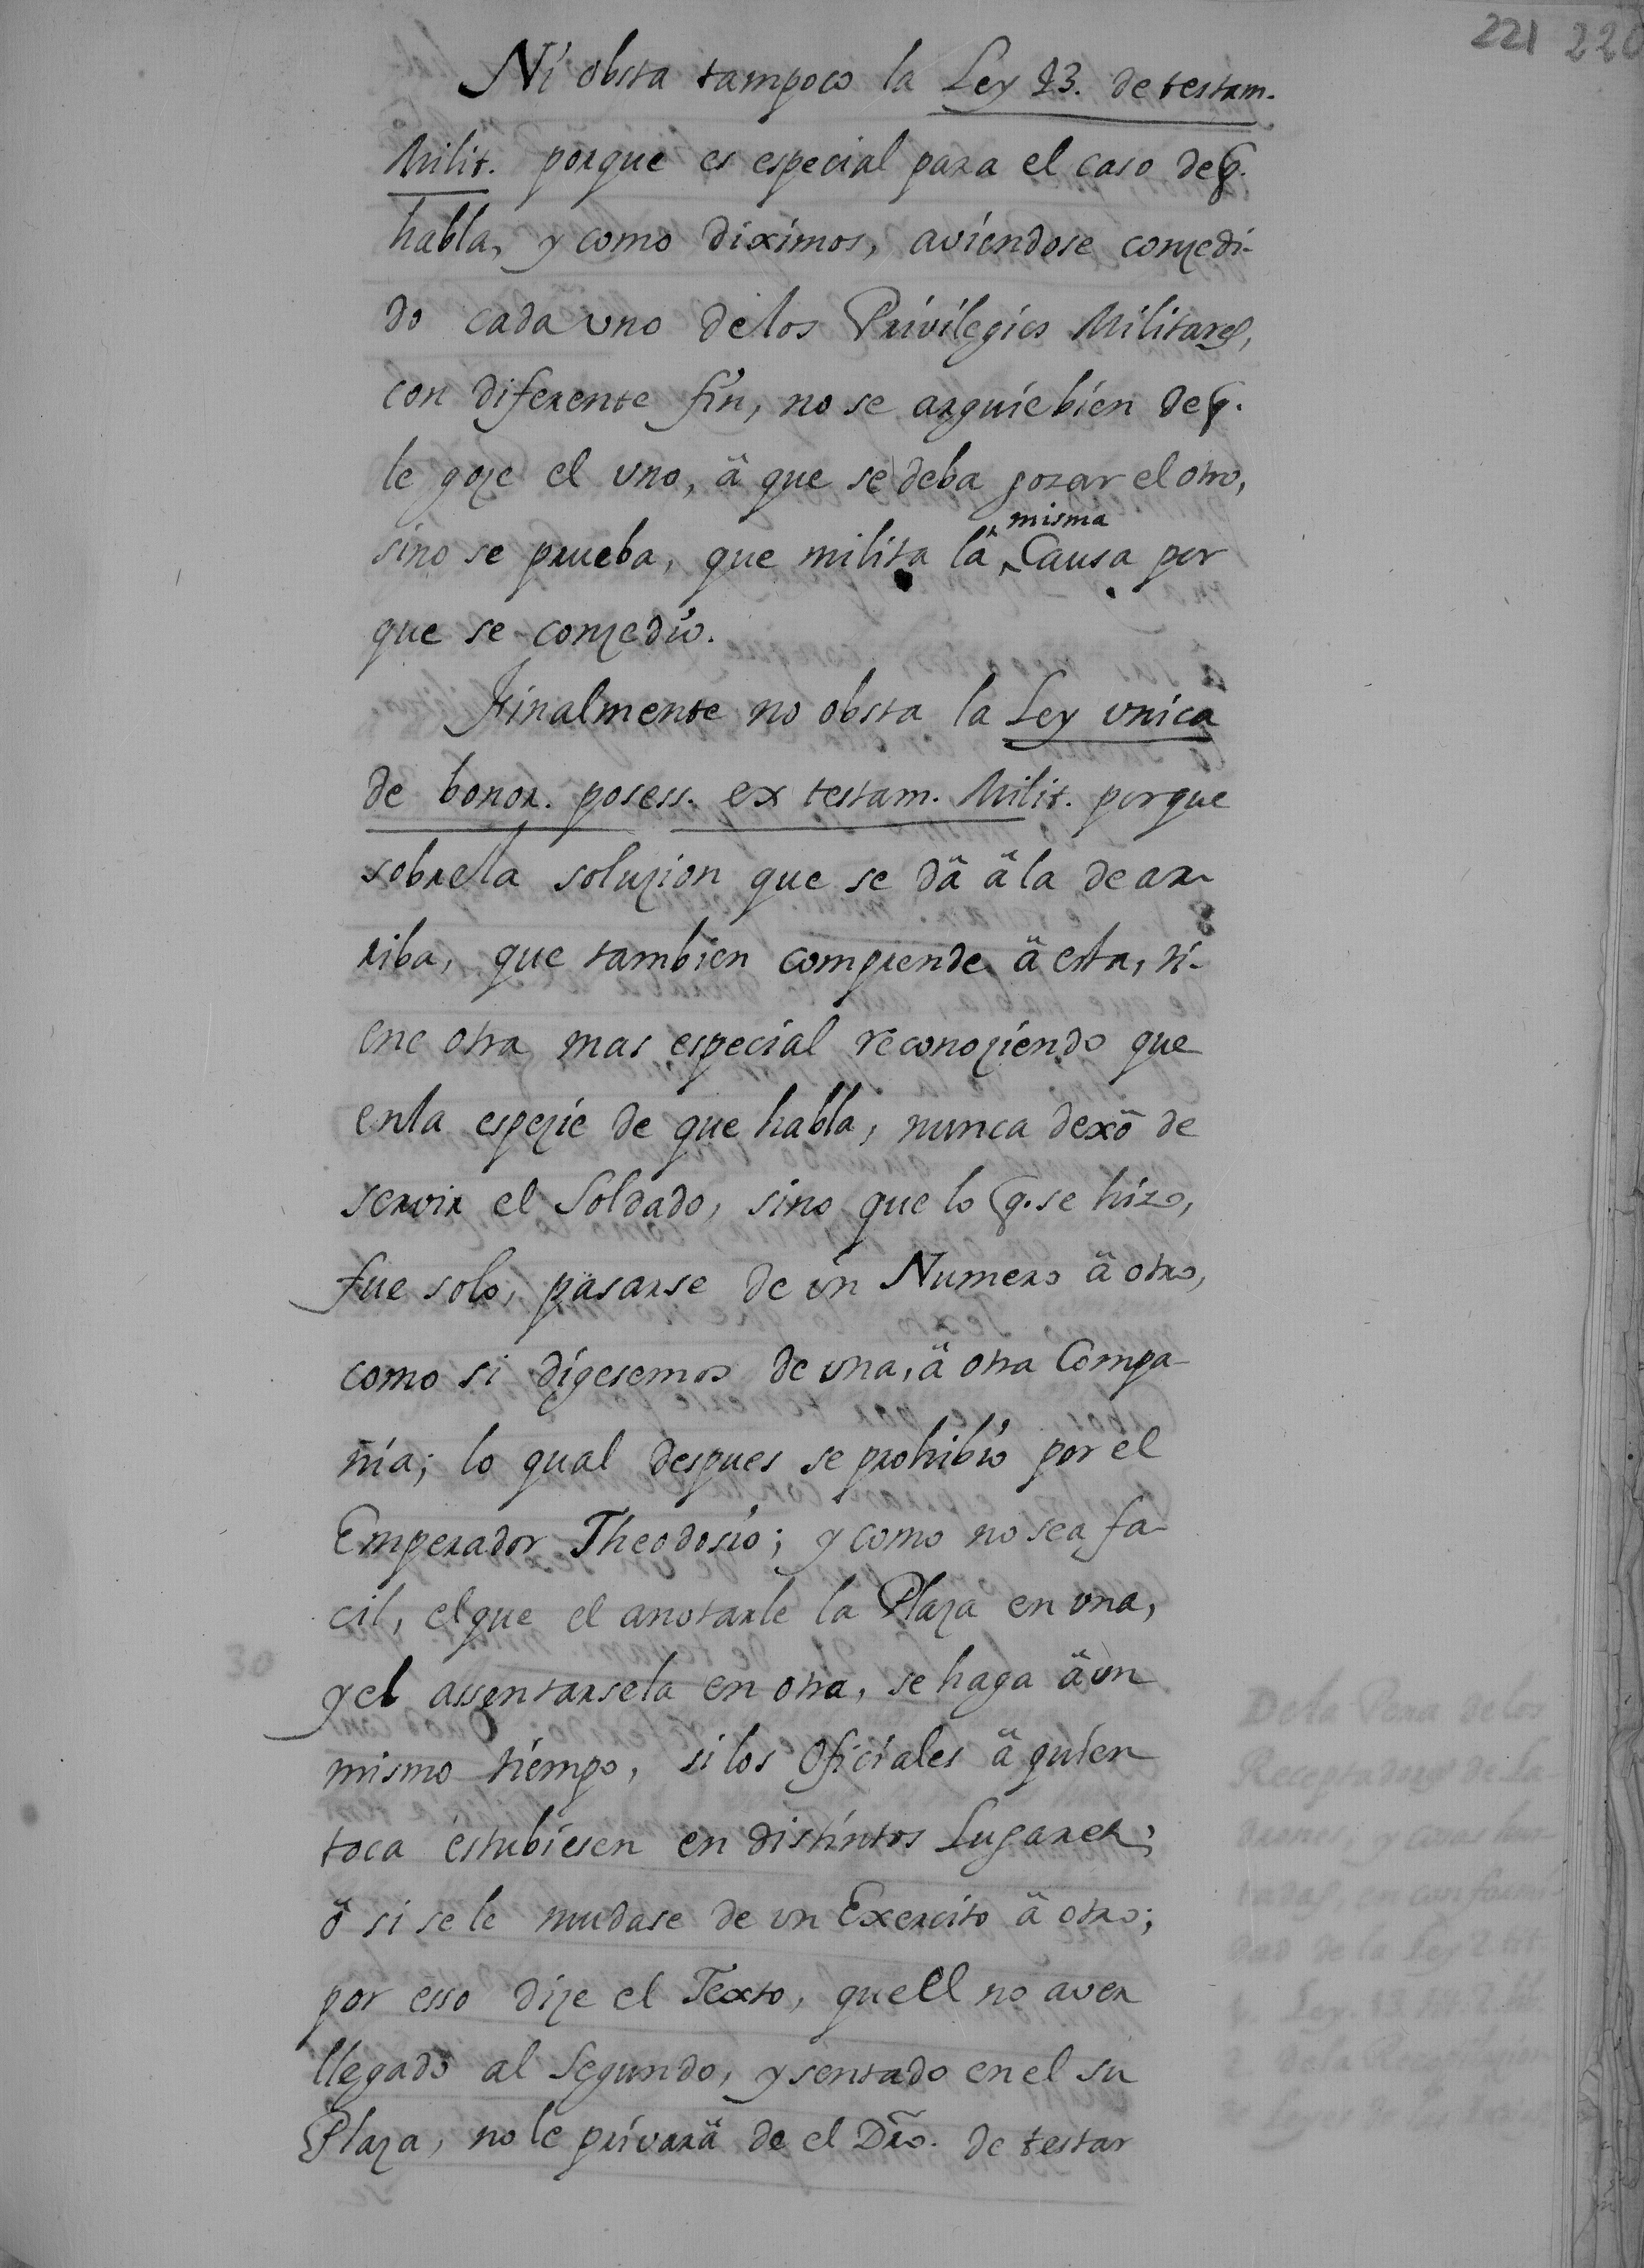 221 220
Ni obsta tampoco la Ley 23. de testam.
Milit. porque es especial para el caso de q.
habla, y como diximos, aviendose conzedi-
do cada uno delos Privilegios Militares,
con diferente fin, no se arguie bien de q.
le goze el uno, â que se deba gozar el otro,
sino se prueba, que milita la misma Causa por
que se conzediò.
Finalmente no obsta la Ley vnica
de bonor. posess. ex testam. Milit. porque
sobrela soluzion que se dâ âla de ar-
riba, que tambien comprende â esta, ti-
ene otra mas especial reconoziendo que
enla espezie de que habla, nunca dexô de
servir el Soldado, sino que lo q. se hizo,
fue solo, pasarse de un Numero â otro,
como si digesemos de una, â otra Compa-
ñia; lo qual despues se prohibiò por el
Emperador Theodosio; y como no sea fa-
cil, elque el anotarle la Plaza en una,
yel assentarsela en otra, se haga â un
mismo tiempo, si los Oficiales â quien
toca estubiesen en distintos Lugares;
ô si sele mudase de un Exercito â otro;
por esso dize el Texto, que el no aver
llegado al Segundo, y sentado en el su
Plaza, no le privarâ de el Dro. de testar
30
Dela Pena de los
Receptadores de La-
drones, y
en conformi-
dad de la Ley 2 tit
Ley. 13.
dela Recopilazion